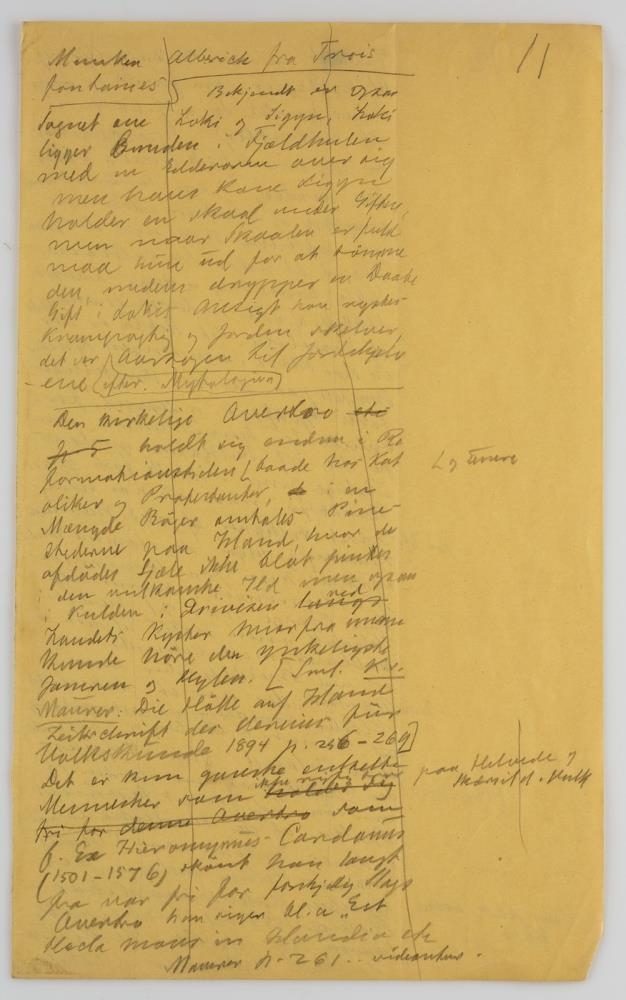 11
Munken Alberich fra Trois
fontaines
Bekjendt er ogsaa
Sagnet om Loki og Sigyn, Loki
ligger Bunden i Fjældhulen
med en Edderorm over sig
men hans Kone Sigyn
holder en Skaal under Giften,
men naar Skaalen er fuld
maa hun ud for at tömme
den, medens drypper en Draabe
Gift i Lokis Ansigt han ryster
Krampagtig og Jorden skælver,
det er Aarsagen til Jordskjælv
ene (efter Mythologien)
Den kirkelige Overtro etc
holdt sig endnu i Re
formationstiden baade hos Kat
og senere
oliker og Protestanter, i en
Mængde Bøger omtales Pine
stederne paa Island, hvor de
afdødes Sjæle ikke blot pines
i den vulkanske Ild men ogsaa
i Kulden i Drivisen langs ved
Landets Kyster hvorfra man
kunde höre den ynkeligste
Jamren og Hylen. [Smlg. K. v.
Maurer: Die Hölle auf Island
Zeitschrift des Vereins für
Volkskunde 1894 p. 256-269]
Det er kun ganske enkelte
Mennesker som ikke holder sig
paa Helvede og
fri for denne Overtro som
f. Ex Hieronymus Cardanus
(1501-1576) skönt han langt
fra var fri for forskjellig Slags
Overtro han siger bl. a "Est
Hecla mons in Islandia etc
Maurer p. 261 .. videantur.